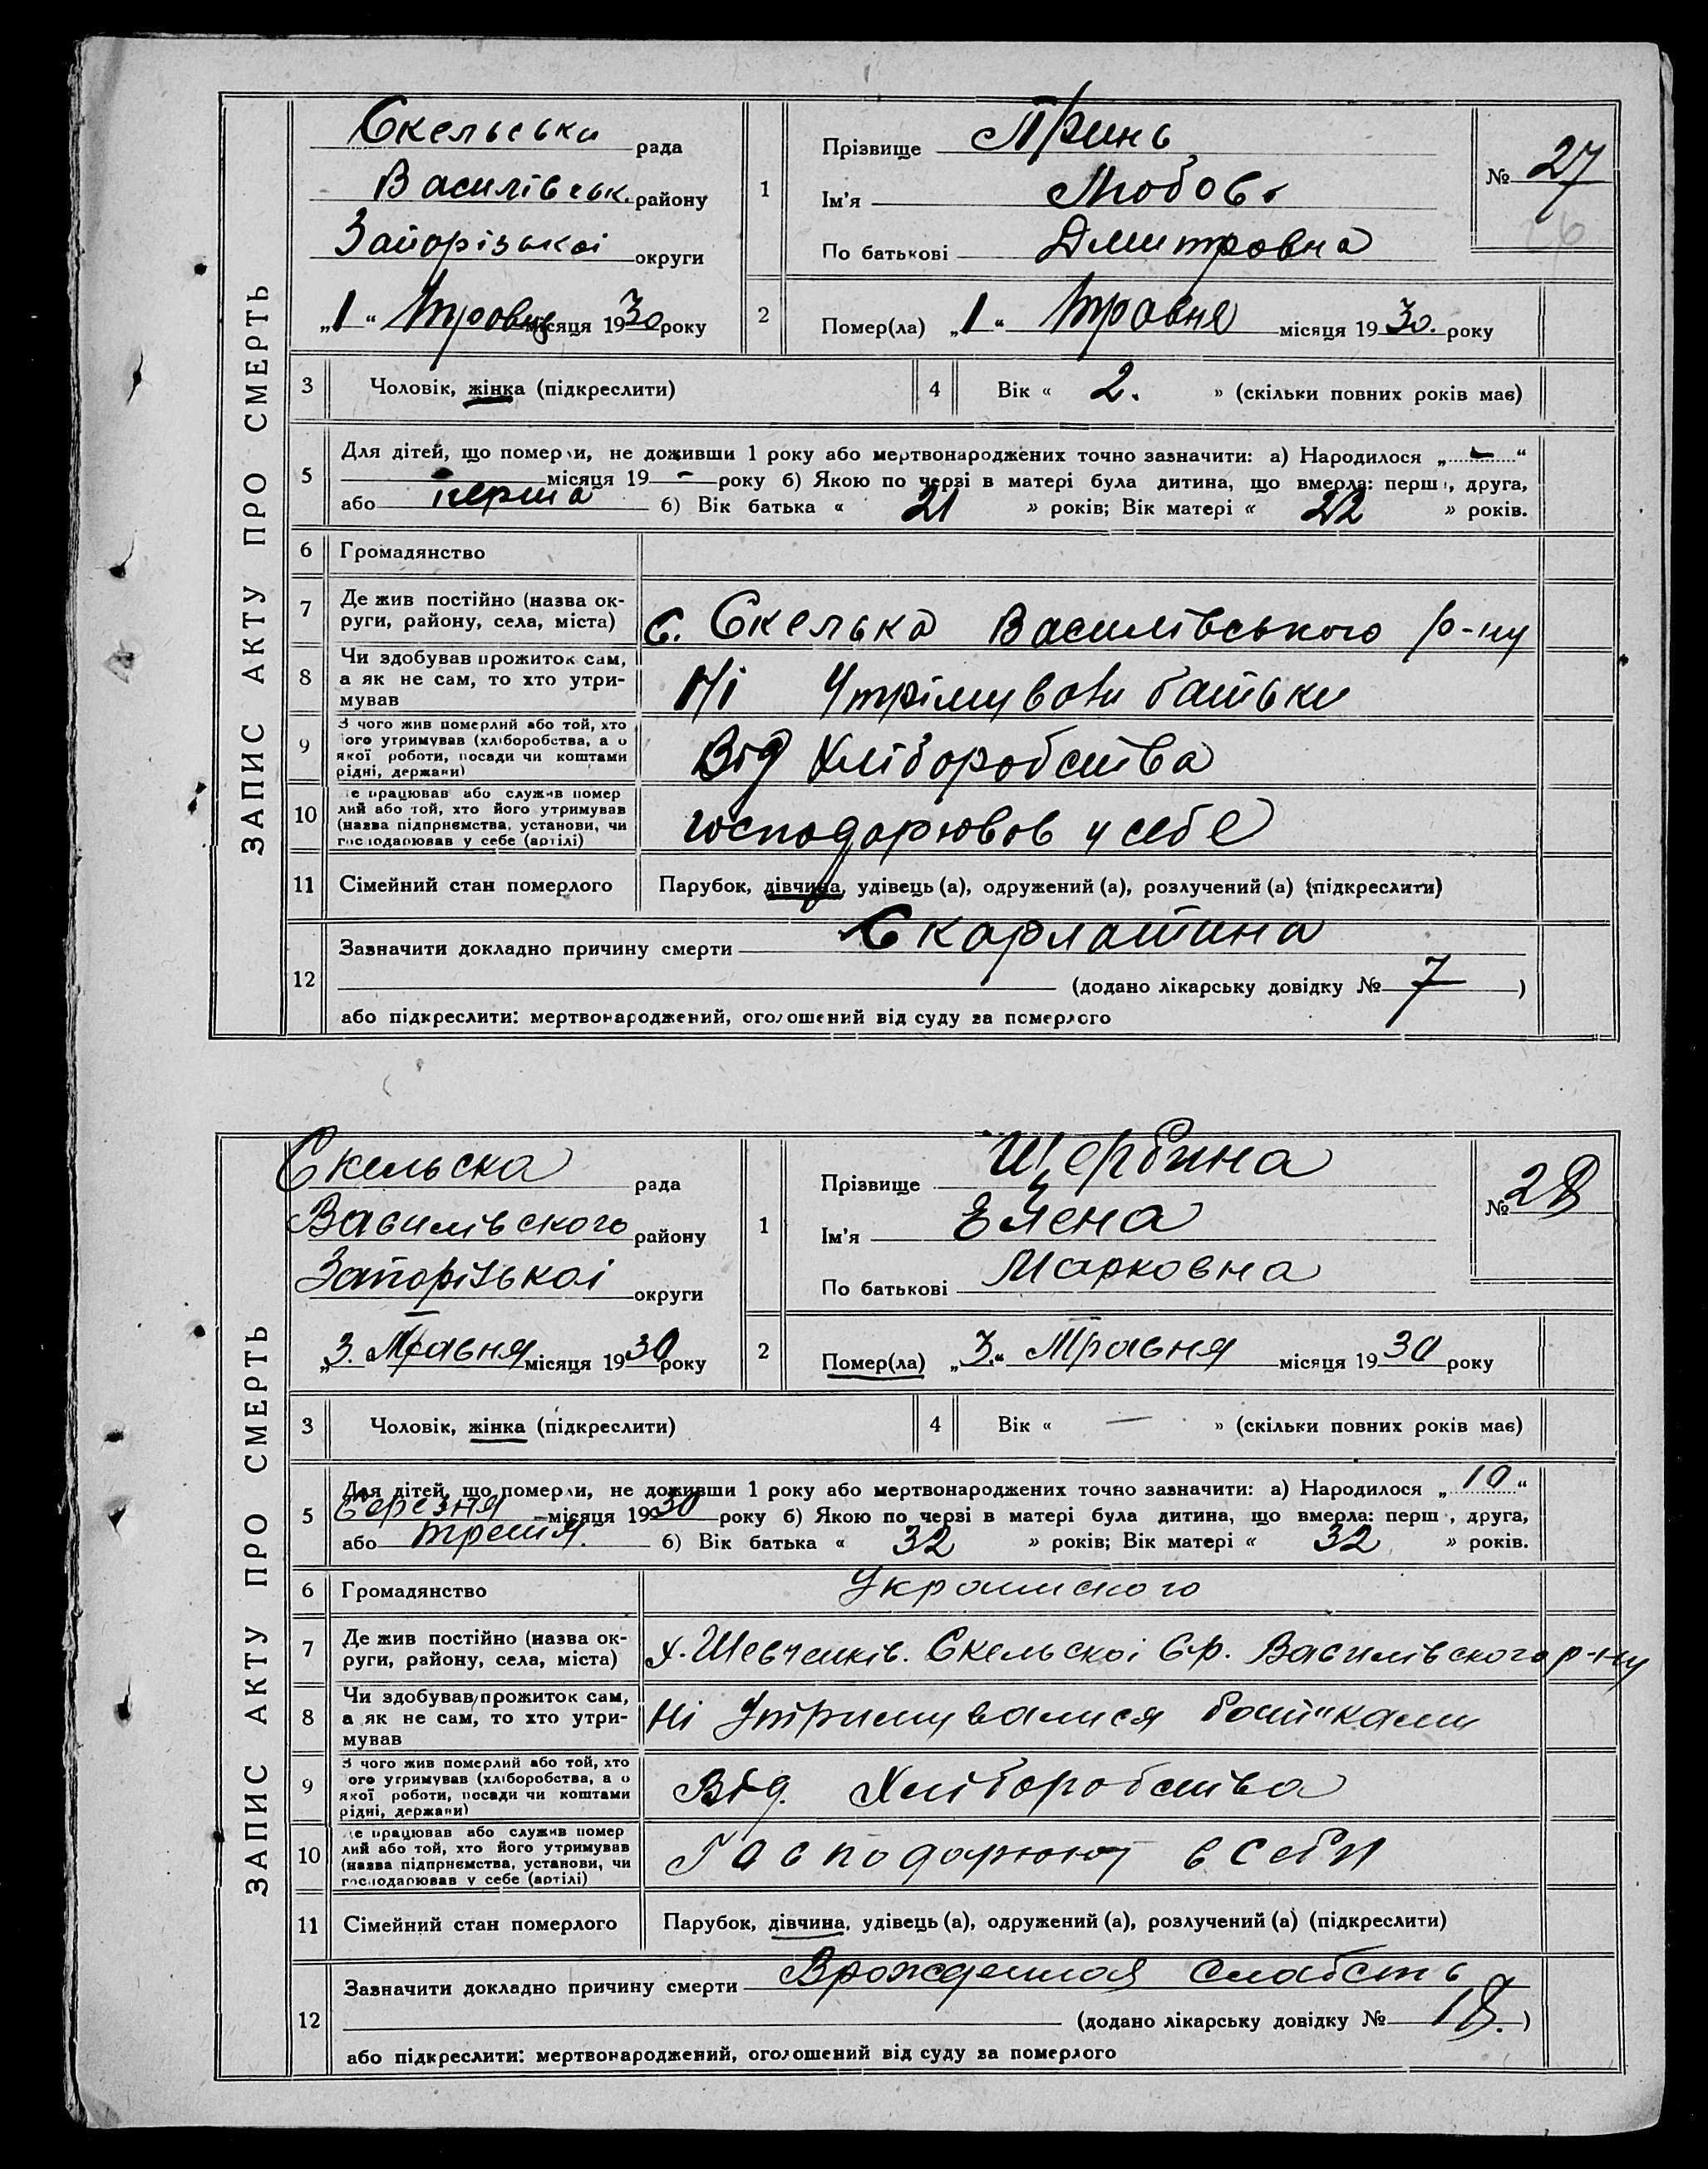 ЗАПИС АКТУ ПРО СМЕРТЬ
Скельська рада
Василівськ. району
Запорізькоі округи
„1“ Травня місяця 1930 року
1
Прізвище Принь
Ім'я Любовь
По батькові Дмитровна
№ 27
26
2
Помер(ла) „1“ Травня місяця 1930. року
3 Чоловік, жінка (підкреслити)
4 Вік « 2. » (скільки повних років має)
5 Для дітей, що померли, не доживши 1 року або мертвонароджених точно зазначити: а) Народилося „ - “
місяця 19 - року б) Якою по черзі в матері була дитина, що вмерла: перша, друга,
або перша б) Вік батька « 21 » років; Вік матері « 22 » років.
6 Громадянство
7 Де жив постійно (назва ок-
руги, району, села, міста)
с. Скелька Василівського р-ну
8 Чи здобував прожиток сам,
а як не сам, то хто утри-
мував
Ні Утрімували батьки
9 З чого жив померлий або той, хто
його утримував (хліборобства, а о
якої роботи, посади чи коштами
рідні, держави)
Від Хліборобства
10 Де працював або служив помер
лий або той, хто його утримував
(назва підприємства, установи, чи
господарював у себе (артілі)
господорювов у себе
11 Сімейний стан померлого
Парубок, дівчина, удівець (а), одружений (а), розлучений (а) (підкреслити)
12 Зазначити докладно причину смерти Скорлатина
(додано лікарську довідку № 7 )
або підкреслити: мертвонароджений, оголошений від суду за померлого
ЗАПИС АКТУ ПРО СМЕРТЬ
Скельска рада
Василівского району
Запорізькоі округи
„3. Травня місяця 1930 року
1
Прізвище Щербина
Ім'я Елена
По батькові Марковна
№ 28
2
Помер(ла) „3.“ Травня місяця 1930 року
3 Чоловік, жінка (підкреслити)
4 Вік « — » (скільки повних років має)
5 Для дітей, що померли, не доживши 1 року або мертвонароджених точно зазначити: а) Народилося „10“
березня місяця 1930 року б) Якою по черзі в матері була дитина, що вмерла: перш , друга,
або третя. б) Вік батька « 32 » років; Вік матері « 32 » років.
6 Громадянство
Украінского
7 Де жив постійно (назва ок-
руги, району, села, міста)
х. Шевченків. Скельскоі С.р. Василівского р-ну
8 Чи здобував прожиток сам,
а як не сам, то хто утри-
мував
Ні Утримувалися бат"ками
9 З чого жив померлий або той, хто
його утримував (хліборобства, а о
якої роботи, посади чи коштами
рідні, держави)
Від. Хліборобства
10 Де працював або служив помер
лий або той, хто його утримував
(назва підприємства, установи, чи
господарював у себе (артілі)
Господорюют в себи
11 Сімейний стан померлого
Парубок, дівчина, удівець (а), одружений (а), розлучений (а) (підкреслити)
12 Зазначити докладно причину смерти Врожденная слабсть
(додано лікарську довідку № 18. )
або підкреслити: мертвонароджений, оголошений від суду за померлого